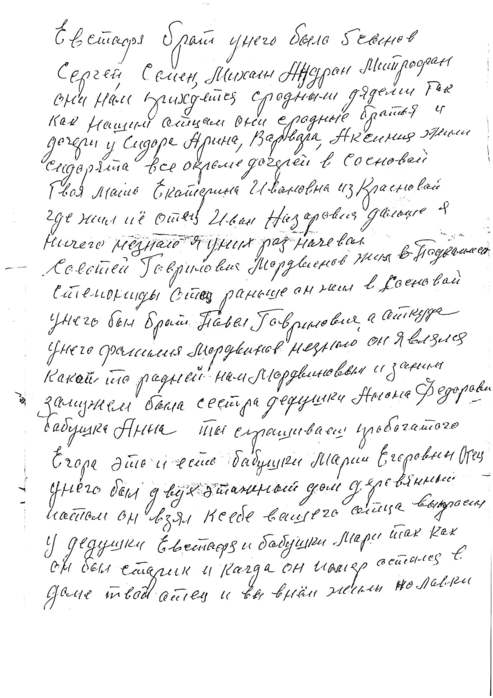 Евстафя брат у него было 5 сынов
Сергей, Семен, Михаил Андриан Митрофан
они нам приходятся сродными дядеми так
как нашим отцам они сродные братья и
дочери у Сидора Арина, Варвара, Аксиния жили
сидорята все окроме дочерей в Сосновой
Твоя мать Екатерина Ивановна из Красновай
где жил её отец Иван Назарович дальше я
ничего незнаю я у них раз начевал
Гаврилович Мордвинов жил в
отец раньше он жил в Сосновай
у него был брат Павел Гаврилович, а аткуда
у него фамилия Мордвинов незнаю, он являлся
какой то радней нам Мордвиновым и за ним
замужем была сестра дедушки Федоровича
бабушка Анна ты спрашиваеш пробогатого
Егора это и есть бабушки Марии Егоровны Отец
у него был двух этажный дом деревянный
потом он взял ксебе вашего отца
у дедушки Евстафя и бабушки Мари так как
он был старик и кагда он помер остался в
даме твой отец и вы в нём жили